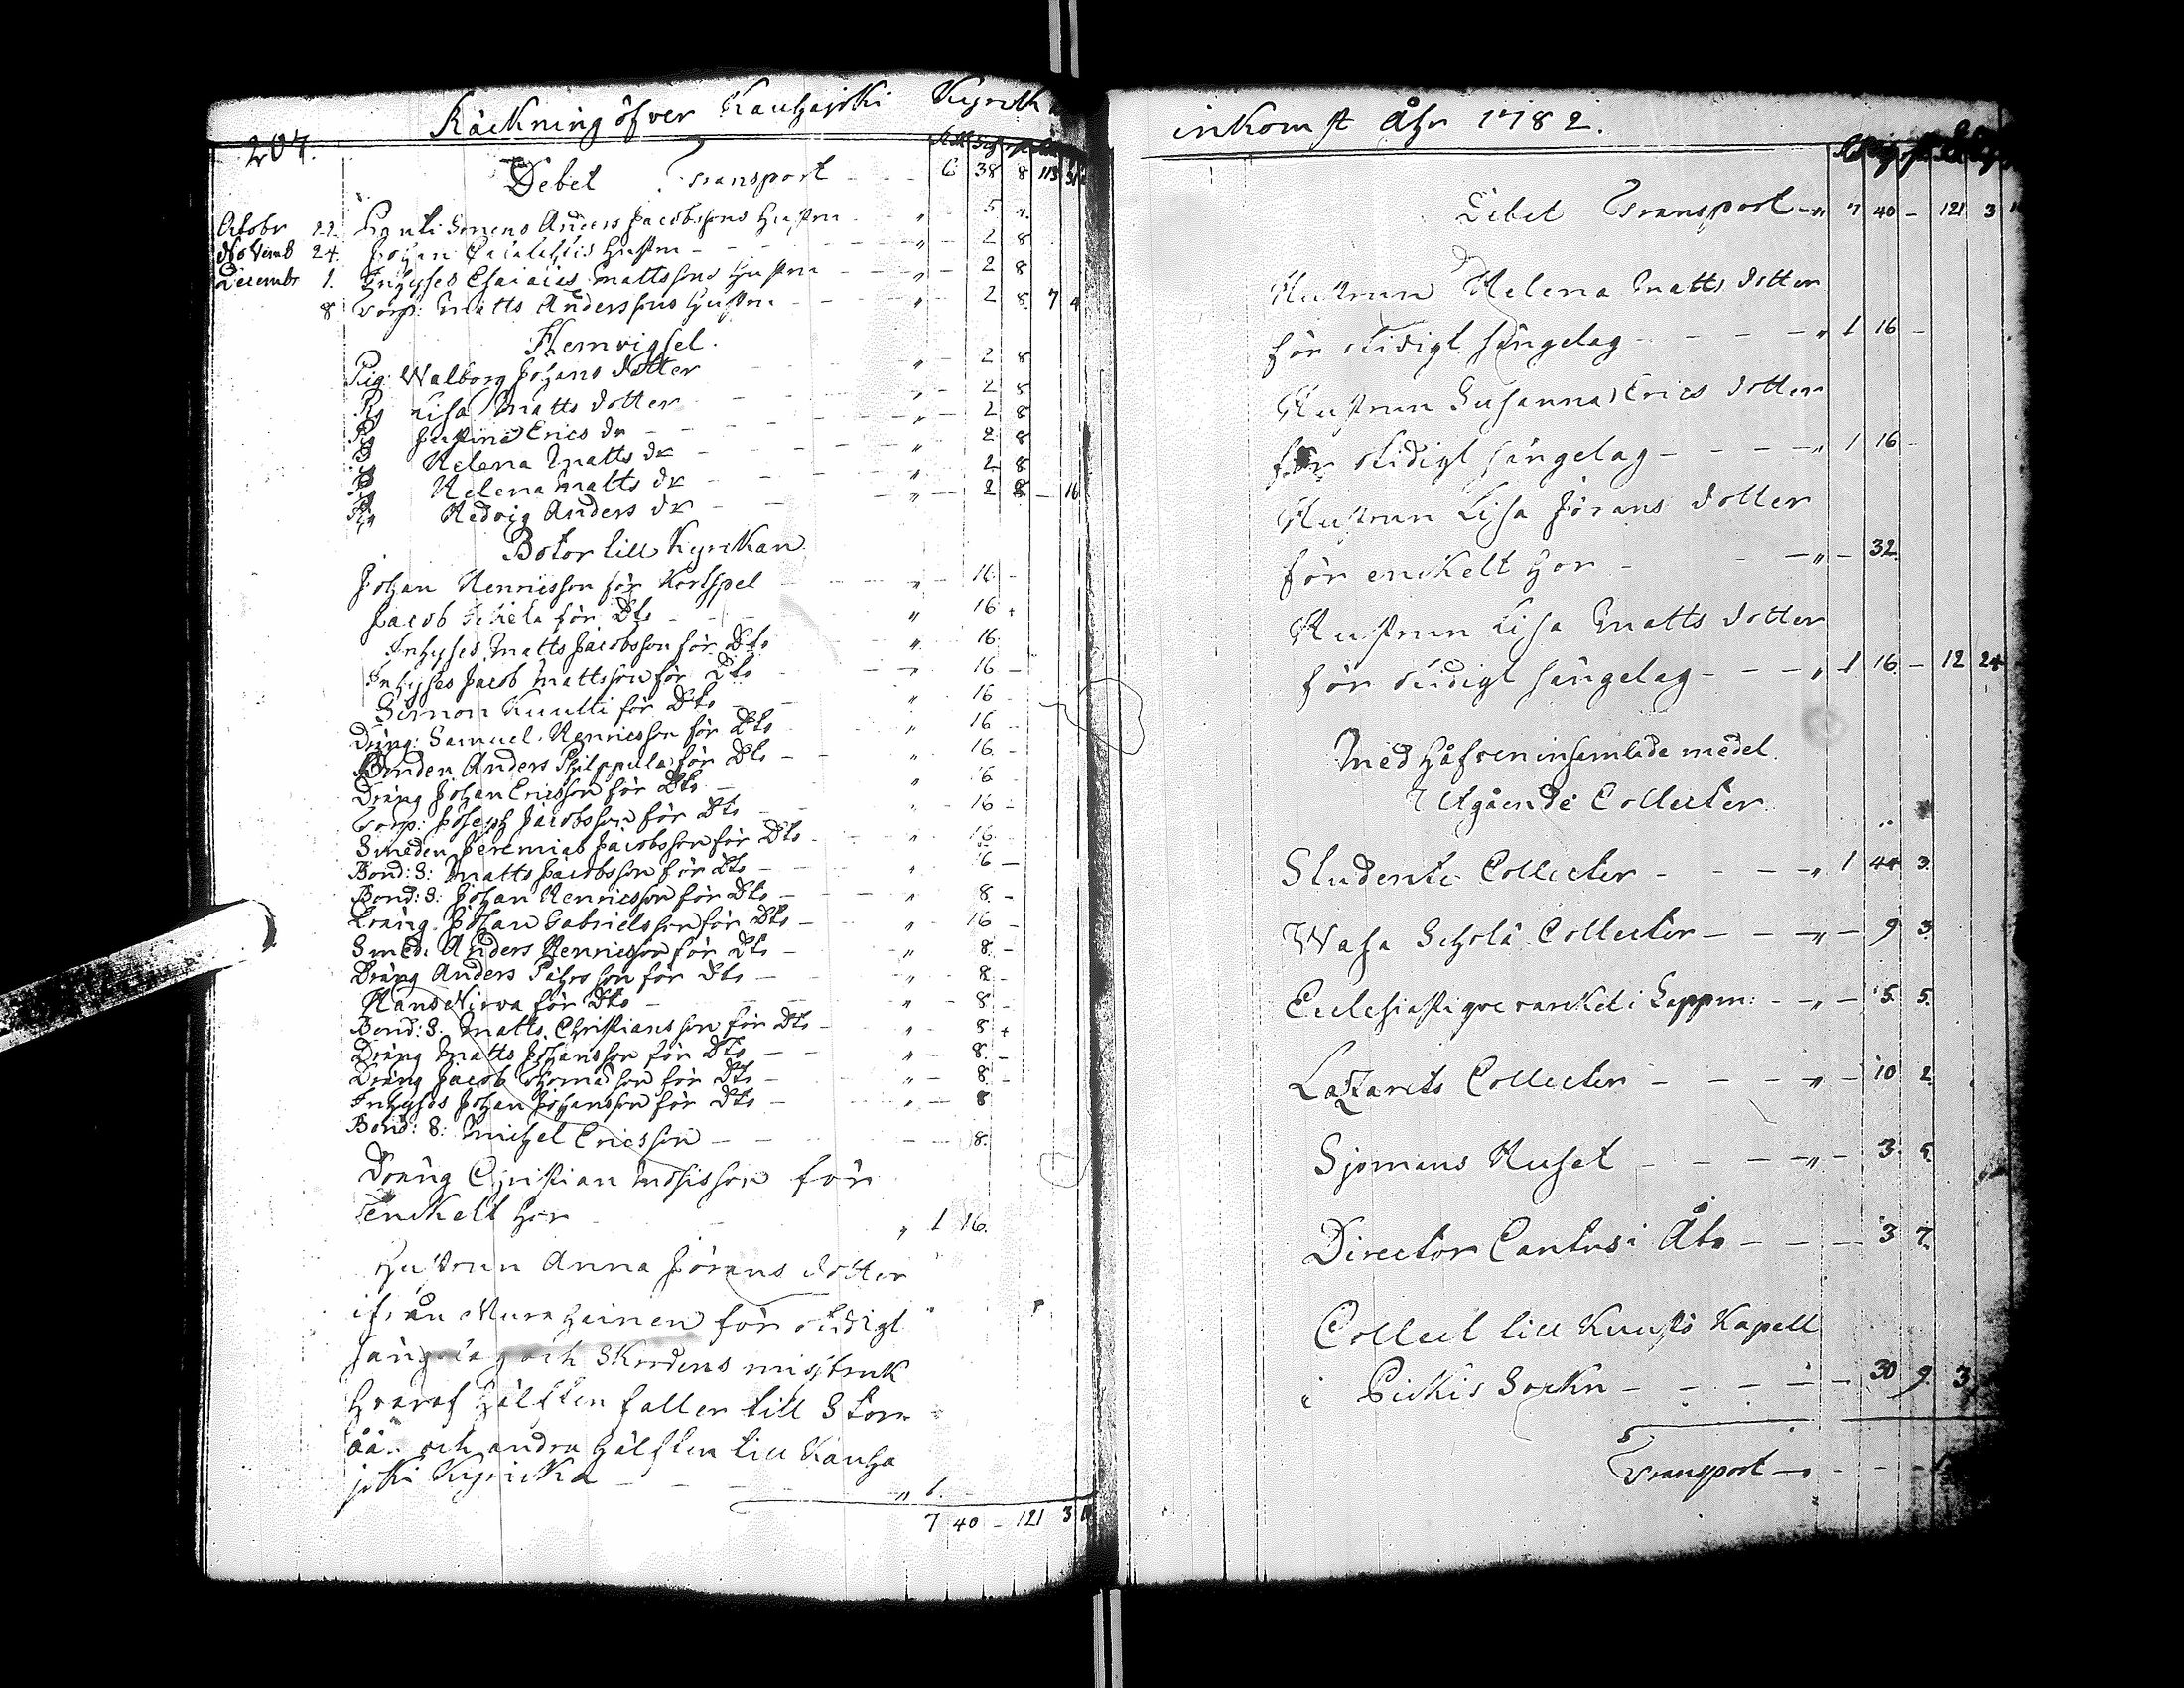 207.
Räckning öfver Kauhajoki Kyrck
Debet Transport - - - 6 38 8 113 31
Octobr 22. Anders Jacobssons Hustru - - „ 5 „
Novemb 24. Johan Hustru - - - „ - 2 8
Decembr 1. Inhyses Esaias Mattssons Hustru - - - „ - 2 8
8 Torp: Matts Anderssons Hustru - - - „ 2 8 7 4
Hemvigsel.
Pig: Walborg Johans dotter - - - „ - 2 8
Pig Lisa Matts dotter - - „ - 2 8
Pig Justina Erics dr - - - „ - 2 8
Helena Matts dr - - - „ 2 8
Helena Matts dr - - - „ 2 8
Hedvig Anders dr - - „ - 2 8 - 16
Botor till Kyrckan
Johan Henricsson för Kortspel - - - „ - 16 -
Jacob för Dto - - - „ 16
Inhyses Matts Jacobsson för Dto - - „ 16
Inhyses Jacob Mattsson för Dto - - „ 16 -
Simon för Dto - - „ 16 -
Dräng: Samuel Henricsson för Dto - - „ 16 -
Bonden Anders Philppula för Dto - - „ 16 -
Dräng Johan Ericsson för Dto - - „ 16 -
Torp: Joseph Jacobsson för Dto - - „ - 16 -
Smeden Jeremias Jacobsson för Dto - - „ 16
Bond: S: Matts Jacobsson för Dto - - „ 16 -
Bond: S: Johan Henricsson för Dto - - - „ 8 -
Dräng Johan Gabrielsson för Dto - „ 16 -
Smed: Anders Henricsson för Dto - „ 8 -
Dräng Anders för Dto - - „ 8 -
Hans för Dto - - - „ - 8 -
Bond: S: Matts Christiansson för Dto - - „ - 8
Dräng Matts Johansson för Dto - - „ - 8 -
Dräng Jacob Thomasson för Dto - - „ - 8 -
Inhyses Johan Johansson för Dto - „ - 8
Bond: S: Michel Ericsson - - - - 8.
Dräng Christian Mosisson för
enckelt hor - „ 1 16.
Hustrun Anna Jörans dotter
ifrån för otidigt
sängelag och missbruk
hvaraf hälften faller till Stor
och andra hälften till Kauha
joki Kyrcka - - - - „ 1.
7 40 - 121 3
inkomst Åhr 1782.
Debet Transport - „ 7 40 - 121 3
Hustrun Helena Matts dotter
för otidigt sängelag - - - - „ 1 16 -
Hustrun Susanna Erics dotter
för otidigt sängelag - - - - „ 1 16 -
Hustrun Lisa Jörans dotter
för enckelt hor - - - „ - 32.
Hustrun Lisa Matts dotter
för otidigt sängelag - - - „ 1 16 - 12 24
Med håfven insamlade medel.
Utgående Collecter
Studente Collecter - - - - „ 1 44 3.
Wasa Schola Collecter - - - „ - 9 3.
Ecclesiastiqve i Lappm: - - „ - 5. 5.
Lazarets Collecter - - - - „ - 10 2.
Sjömans Huset - - - - „ - 3. 5.
Director Cantus i Åbo - - - - 3 7.
Collect till Kapell
i Sockn - - - - - 30 9. 3
Transport - - - -